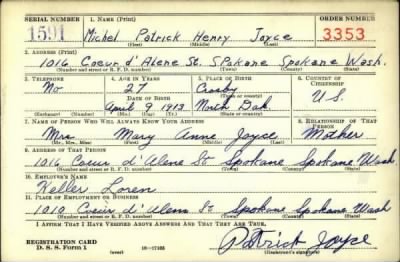 SERIAL NUMBER 1. NAME (Print) ORDER NUMBER
1591 Michel Patrick Henry Joyce 3353
(First) (Middle) (Last)
2. ADDRESS (Print)
1016 Coeur d'Alene St. Spokane Spokane Wash.
(Number and street or R. F. D. number) (Town) (County) (State)
3. TELEPHONE 4. AGE IN YEARS 5. PLACE OF BIRTH 6. COUNTRY OF CITIZENSHIP
No 27 Crosby
DATE OF BIRTH (Town or county) U.S.
April 9 1913 North Dak.
(Mo.) (Day) (Yr.) (State or country)
7. NAME OF PERSON WHO WILL ALWAYS KNOW YOUR ADDRESS 8. RELATIONSHIP OF THAT PERSON
Mrs Mary Anne Joyce Mother
(Mr., Mrs., Miss) (First) (Middle) (Last)
9. ADDRESS OF THAT PERSON
1016 Coeur d'Alene St Spokane Spokane Wash
(Number and street or R. F. D. number) (Town) (County) (State)
10. EMPLOYER'S NAME
Keller Loren
11. PLACE OF EMPLOYMENT OR BUSINESS
1010 Coeur d'Alene St Spokane Spokane Wash
(Number and street or R. F. D. number) (Town) (County) (State)
I AFFIRM THAT I HAVE VERIFIED ABOVE ANSWERS AND THAT THEY ARE TRUE.
REGISTRATION CARD
D. S. S. Form 1 (over) 16—17105 Patrick Joyce
(Registrant's signature)